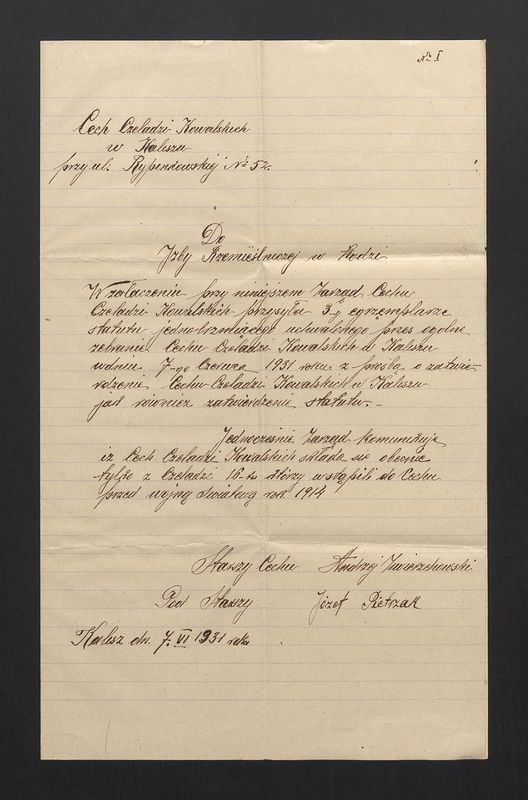 № I
Cech Czeladzi Kowalskich
w Kaliszu
przy ul. Rypinkowskiej № 52.
Do
Izby Rzemieślniczej w Łodzi
W załączeniu przy niniejszem Zarząd Cechu
Czeladzi Kowalskich przysyła 3-y egzemplarze
statutu jednobrzmiącego uchwalonego przes ogolne
zebranie Cechu Czeladzi Kowalskich w Kaliszu
wdniu 7-go Czerwca 1931 roku. z prośbą o zatwier-
rdzenie Cechu Czeladzi Kowalskich w Kaliszu
jak również zatwierdzenie statutu.-
Jednocześnie Zarząd komunikuje
iz Cech Czeladzi Kowalskich składa się obecnie
tylko z Czeladzi 16-tu którzy wstąpili do Cechu
przed wojną światową rok. 1914
Starszy Cechu Andrzej Zwierzchowski
Pod Starszy Józef Pietrzak
Kalisz dn. 7. VI 1931 roku